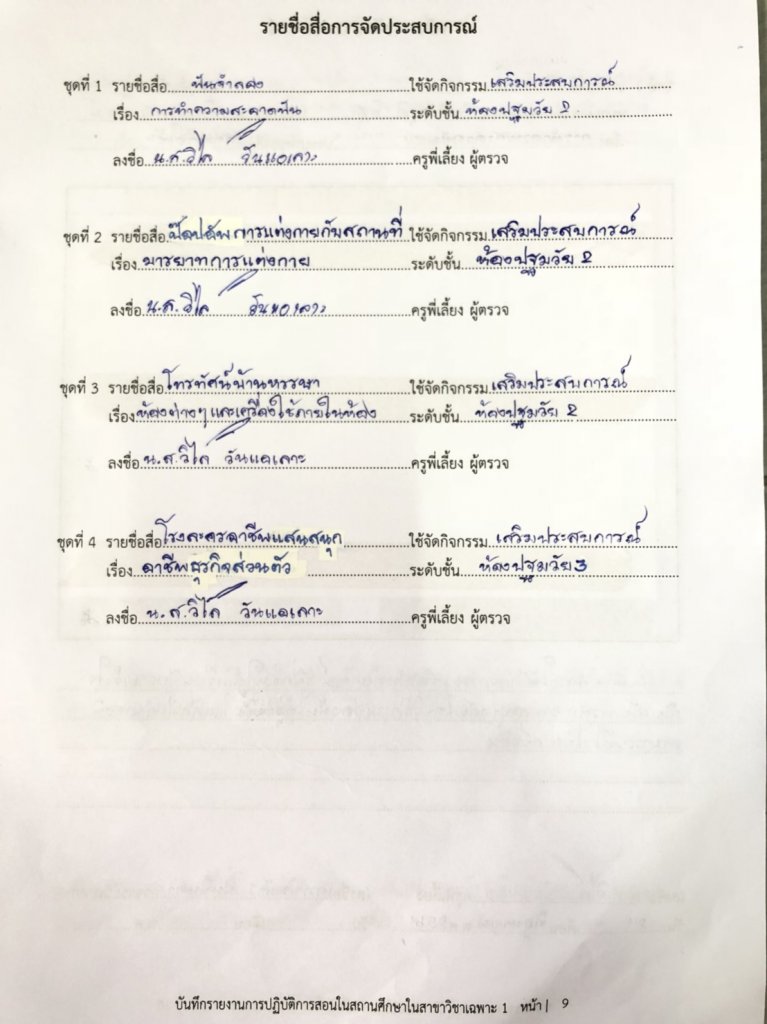 รายชื่อสื่อการจัดประสบการณ์
ชุดที่ 1 รายชื่อสื่อ ฟันจำลอง ใช้จัดกิจกรรม เสริมประสบการณ์
เรื่อง การทำความสะอาดฟัน ระดับชั้น ห้องปฐมวัย 2
ลงชื่อ น.ส.วิไล วันแอเลาะ ครูพี่เลี้ยง ผู้ตรวจ
ชุดที่ 2 รายชื่อสื่อ การแต่งกายกับสถานที่ ใช้จัดกิจกรรม เสริมประสบการณ์
เรื่อง มารยาทการแต่งกาย ระดับชั้น ห้องปฐมวัย 2
ลงชื่อ น.ส.วิไล วันแอเลาะ ครูพี่เลี้ยง ผู้ตรวจ
ชุดที่ 3 รายชื่อสื่อ โทรทัศน์บ้านหรรษา ใช้จัดกิจกรรม เสริมประสบการณ์
เรื่อง ห้องต่างๆและเครื่องใช้ภายในห้อง ระดับชั้น ห้องปฐมวัย 2
ลงชื่อ น.ส.วิไล วันแอเลาะ ครูพี่เลี้ยง ผู้ตรวจ
ชุดที่ 4 รายชื่อสื่อ โรงละครอาชีพแสนสนุก ใช้จัดกิจกรรม เสริมประสบการณ์
เรื่อง อาชีพธุรกิจส่วนตัว ระดับชั้น ห้องปฐมวัย 3
ลงชื่อ น.ส.วิไล วันแอเลาะ ครูพี่เลี้ยง ผู้ตรวจ
บันทึกรายงานการปฏิบัติการสอนในสถานศึกษาในสาขาวิชาเฉพาะ 1 หน้า | 9